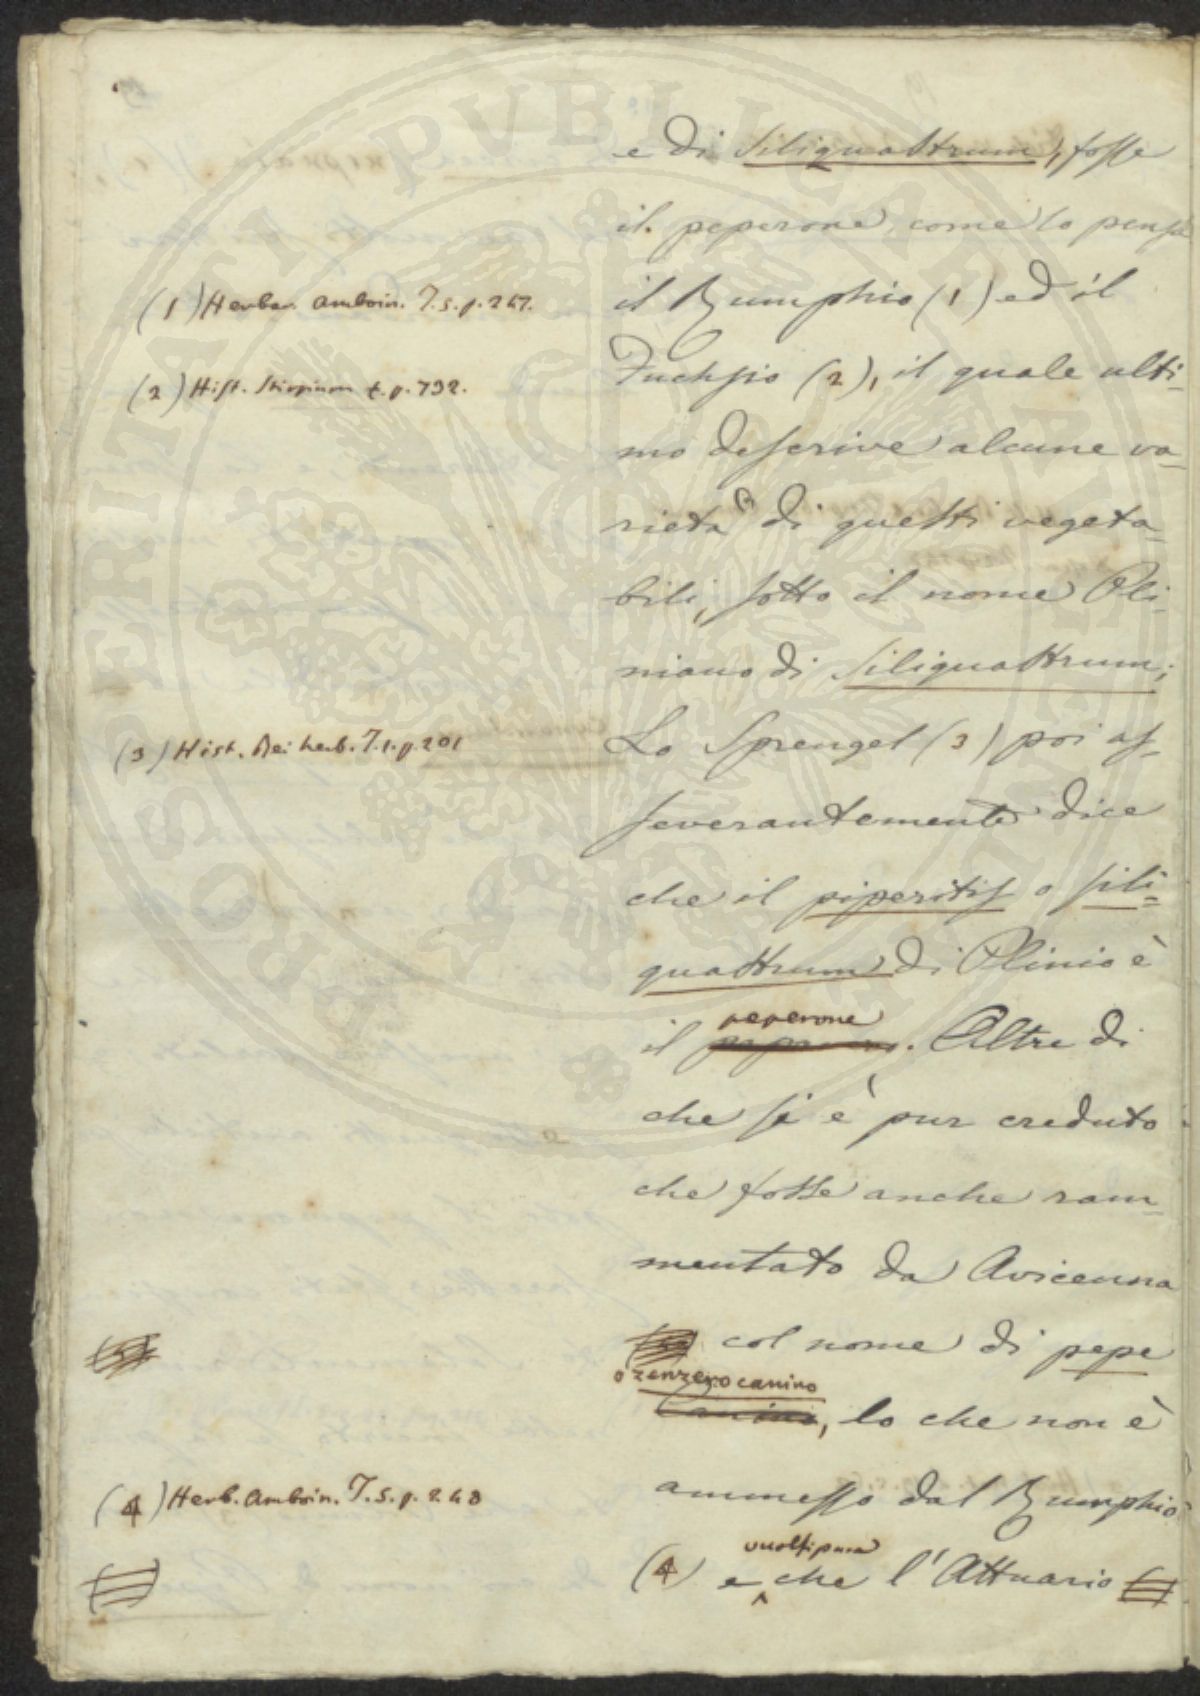 e di Siliquastrum, fosse
il peperone, come lo pensa
(1) Herbar. amboin. T. 5. p. 247.
il Rumphio (1) ed il
(2) Hist. Stirpium t. p. 732.
Fuchsio (2), il quale ulti-
mo descrive alcune va-
rietà di questi vegeta-
bili, sotto il nome Pli-
niano di Siliquastrum;
(3) Hist. Rei herb. T. 1. p. 201
Lo Sprengel (3) poi as-
severantemente dice
che il piperitis o sili=
quastrum di Plinio è
il peperone. Altre di
che si è pur creduto
che fosse anche ram-
mentato da Avicenna
col nome di pepe
o zenzero canino
Canino, lo che non è
(4) Herb. Amboin. T. 5. p. 248
ammesso dal Rumphio
vuolsi pure
(4) e che l'Attuario
PROSPERITATI PVBLICAE